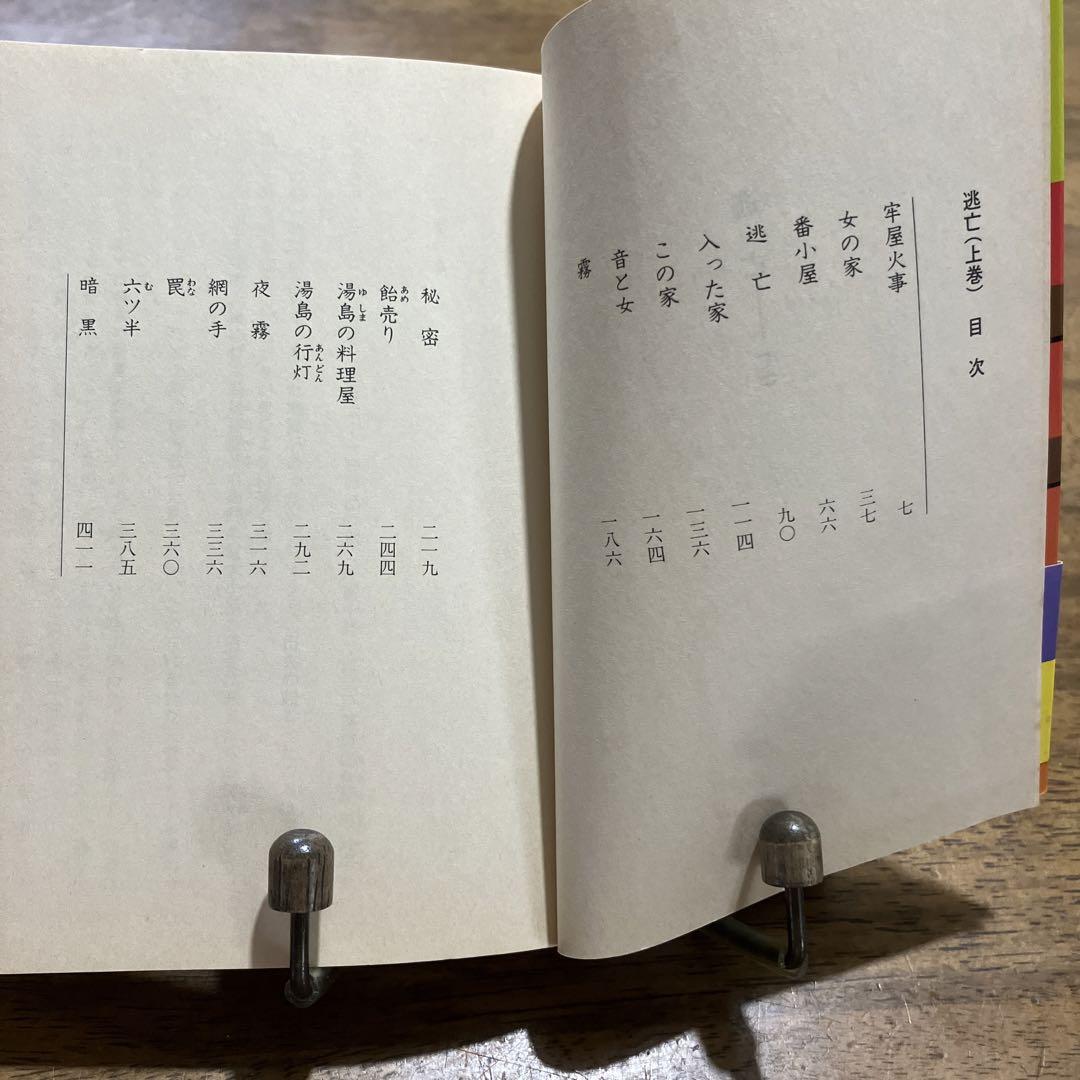 逃亡(上巻) 目次
牢屋火事 七
女の家 三七
番小屋 六六
逃亡 九〇
入った家 一一四
この家 一三六
音と女 一六四
霧 一八六
秘密 二一九
あめ
飴売り 二四四
ゆしま
湯島の料理屋 二六九
あんどん
湯島の行灯 二九二
夜霧 三一六
網の手 三三六
わな
罠 三六〇
む
六ツ半 三八五
暗黒 四一一